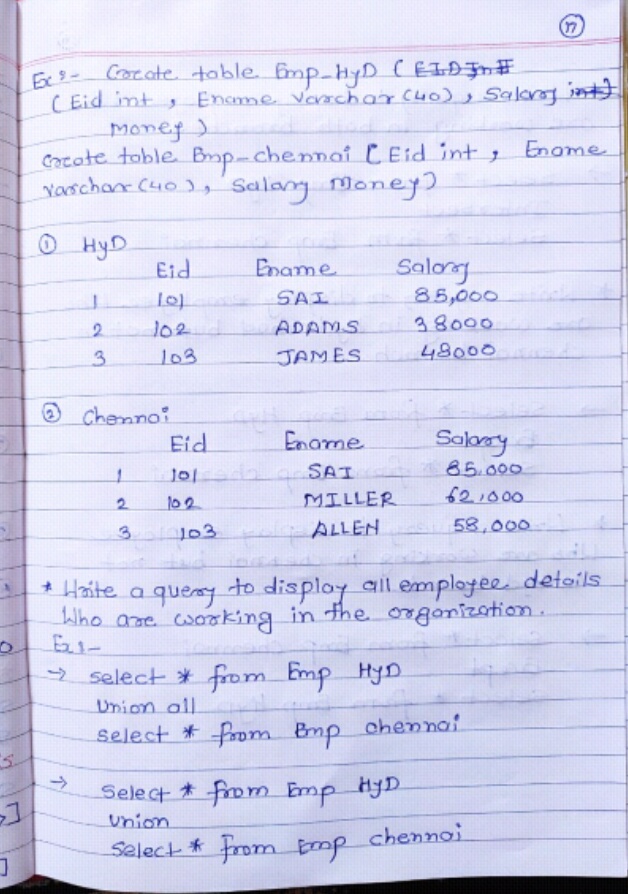 17
Ex:- Create table Emp_HyD (
( Eid int , Ename Varchar (40) , Salary
Money )
Create table Emp-chennai ( Eid int , Ename
Varchar (40) , Salary Money )
① HyD
Eid Ename Salary
1 101 SAI 85,000
2 102 ADAMS 38000
3 103 JAMES 48000
② Chennai
Eid Ename Salary
1 101 SAI 85,000
2 102 MILLER 62,000
3 103 ALLEN 58,000
* Write a query to display all employee details
Who are working in the organization.
Ex:-
→ select * from Emp HyD
Union all
select * from Emp chennai
→ Select * from Emp HyD
union
Select * from Emp chennai